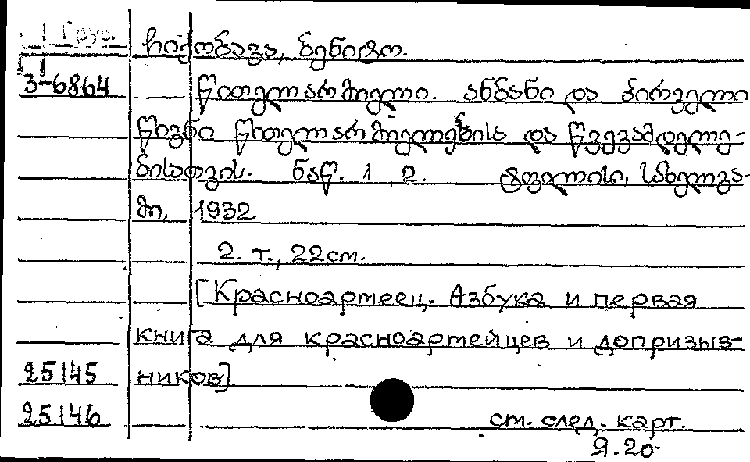 1 Груз. ჩიქობავა, ბენიტო.
3-6864 წითელარმიელი. ანბანი და პირველი
წიგნი წითელარმიელებისა და წვევამდელე-
ბისათვის. ნაწ. 1, 2. ტფილისი, სახელგა-
მი, 1932
2. т., 22 см.
[Красноармеец. Азбука и первая
книга для красноармейцев и допризыв-
25145 ников]
25146 см. след. карт.
9.20